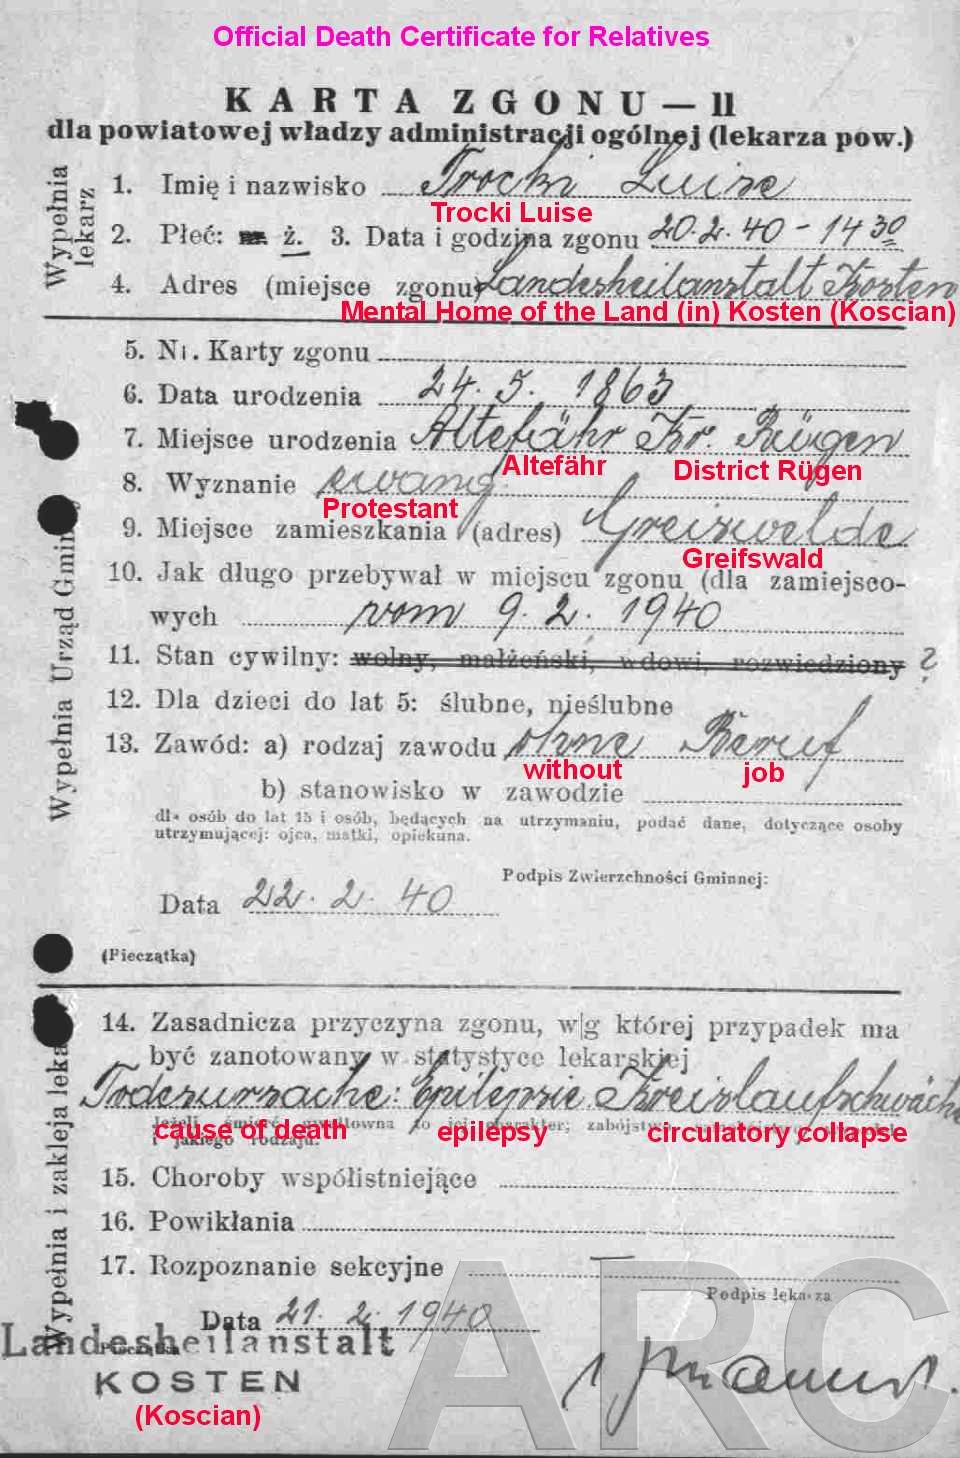 Official Death Certificate for Relatives
KARTA ZGONU — II
dla powiatowej władzy administracji ogólnej (lekarza pow.)
Wypełnia lekarz
1. Imię i nazwisko Trocki Luise
Trocki Luise
2. Płeć: ż. 3. Data i godzina zgonu 20.2.40 - 14 30
4. Adres (miejsce zgonu) Landesheilanstalt Kosten
Mental Home of the Land (in) Kosten (Koscian)
Wypełnia Urząd Gminny
5. Nr. Karty zgonu
6. Data urodzenia 24. 5. 1863
7. Miejsce urodzenia Altefähr Kr. Rügen
Altefähr District Rügen
8. Wyznanie ewang.
Protestant
9. Miejsce zamieszkania (adres) Greiswalde
Greifswald
10. Jak długo przebywał w miejscu zgonu (dla zamiejsco-
wych vom 9. 2. 1940
11. Stan cywilny: wolny, małżeński, wdowi, rozwiedziony ?
12. Dla dzieci do lat 5: ślubne, nieślubne
13. Zawód: a) rodzaj zawodu ohne Beruf
without job
b) stanowisko w zawodzie
dla osób do lat 15 i osób, będących na utrzymaniu, podać dane, dotyczące osoby
utrzymującej: ojca, matki, opiekuna.
Podpis Zwierzchności Gminnej:
Data 22. 2. 40
(Pieczątka)
Wypełnia i zakleja leka
14. Zasadnicza przyczyna zgonu, w|g której przypadek ma
być zanotowany w statystyce lekarskiej
Todesursache: Epilepsie. Kreislaufschwäche
cause of death epilepsy circulatory collapse
jakiego rodzaju.
15. Choroby współistniejące
16. Powikłania
17. Rozpoznanie sekcyjne
Podpis lekarza
Data 21. 2. 1940
Landesheilanstalt
Pieczątka
KOSTEN
(Koscian)
ARC